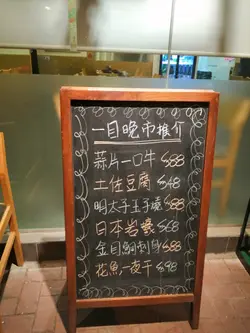 一目晚市推介
蒜片一口牛 $88
土佐豆腐 $48
明太子玉子燒 $88
日本岩蠔 $68
金目鯛刺身 $88
花魚一夜干 $98